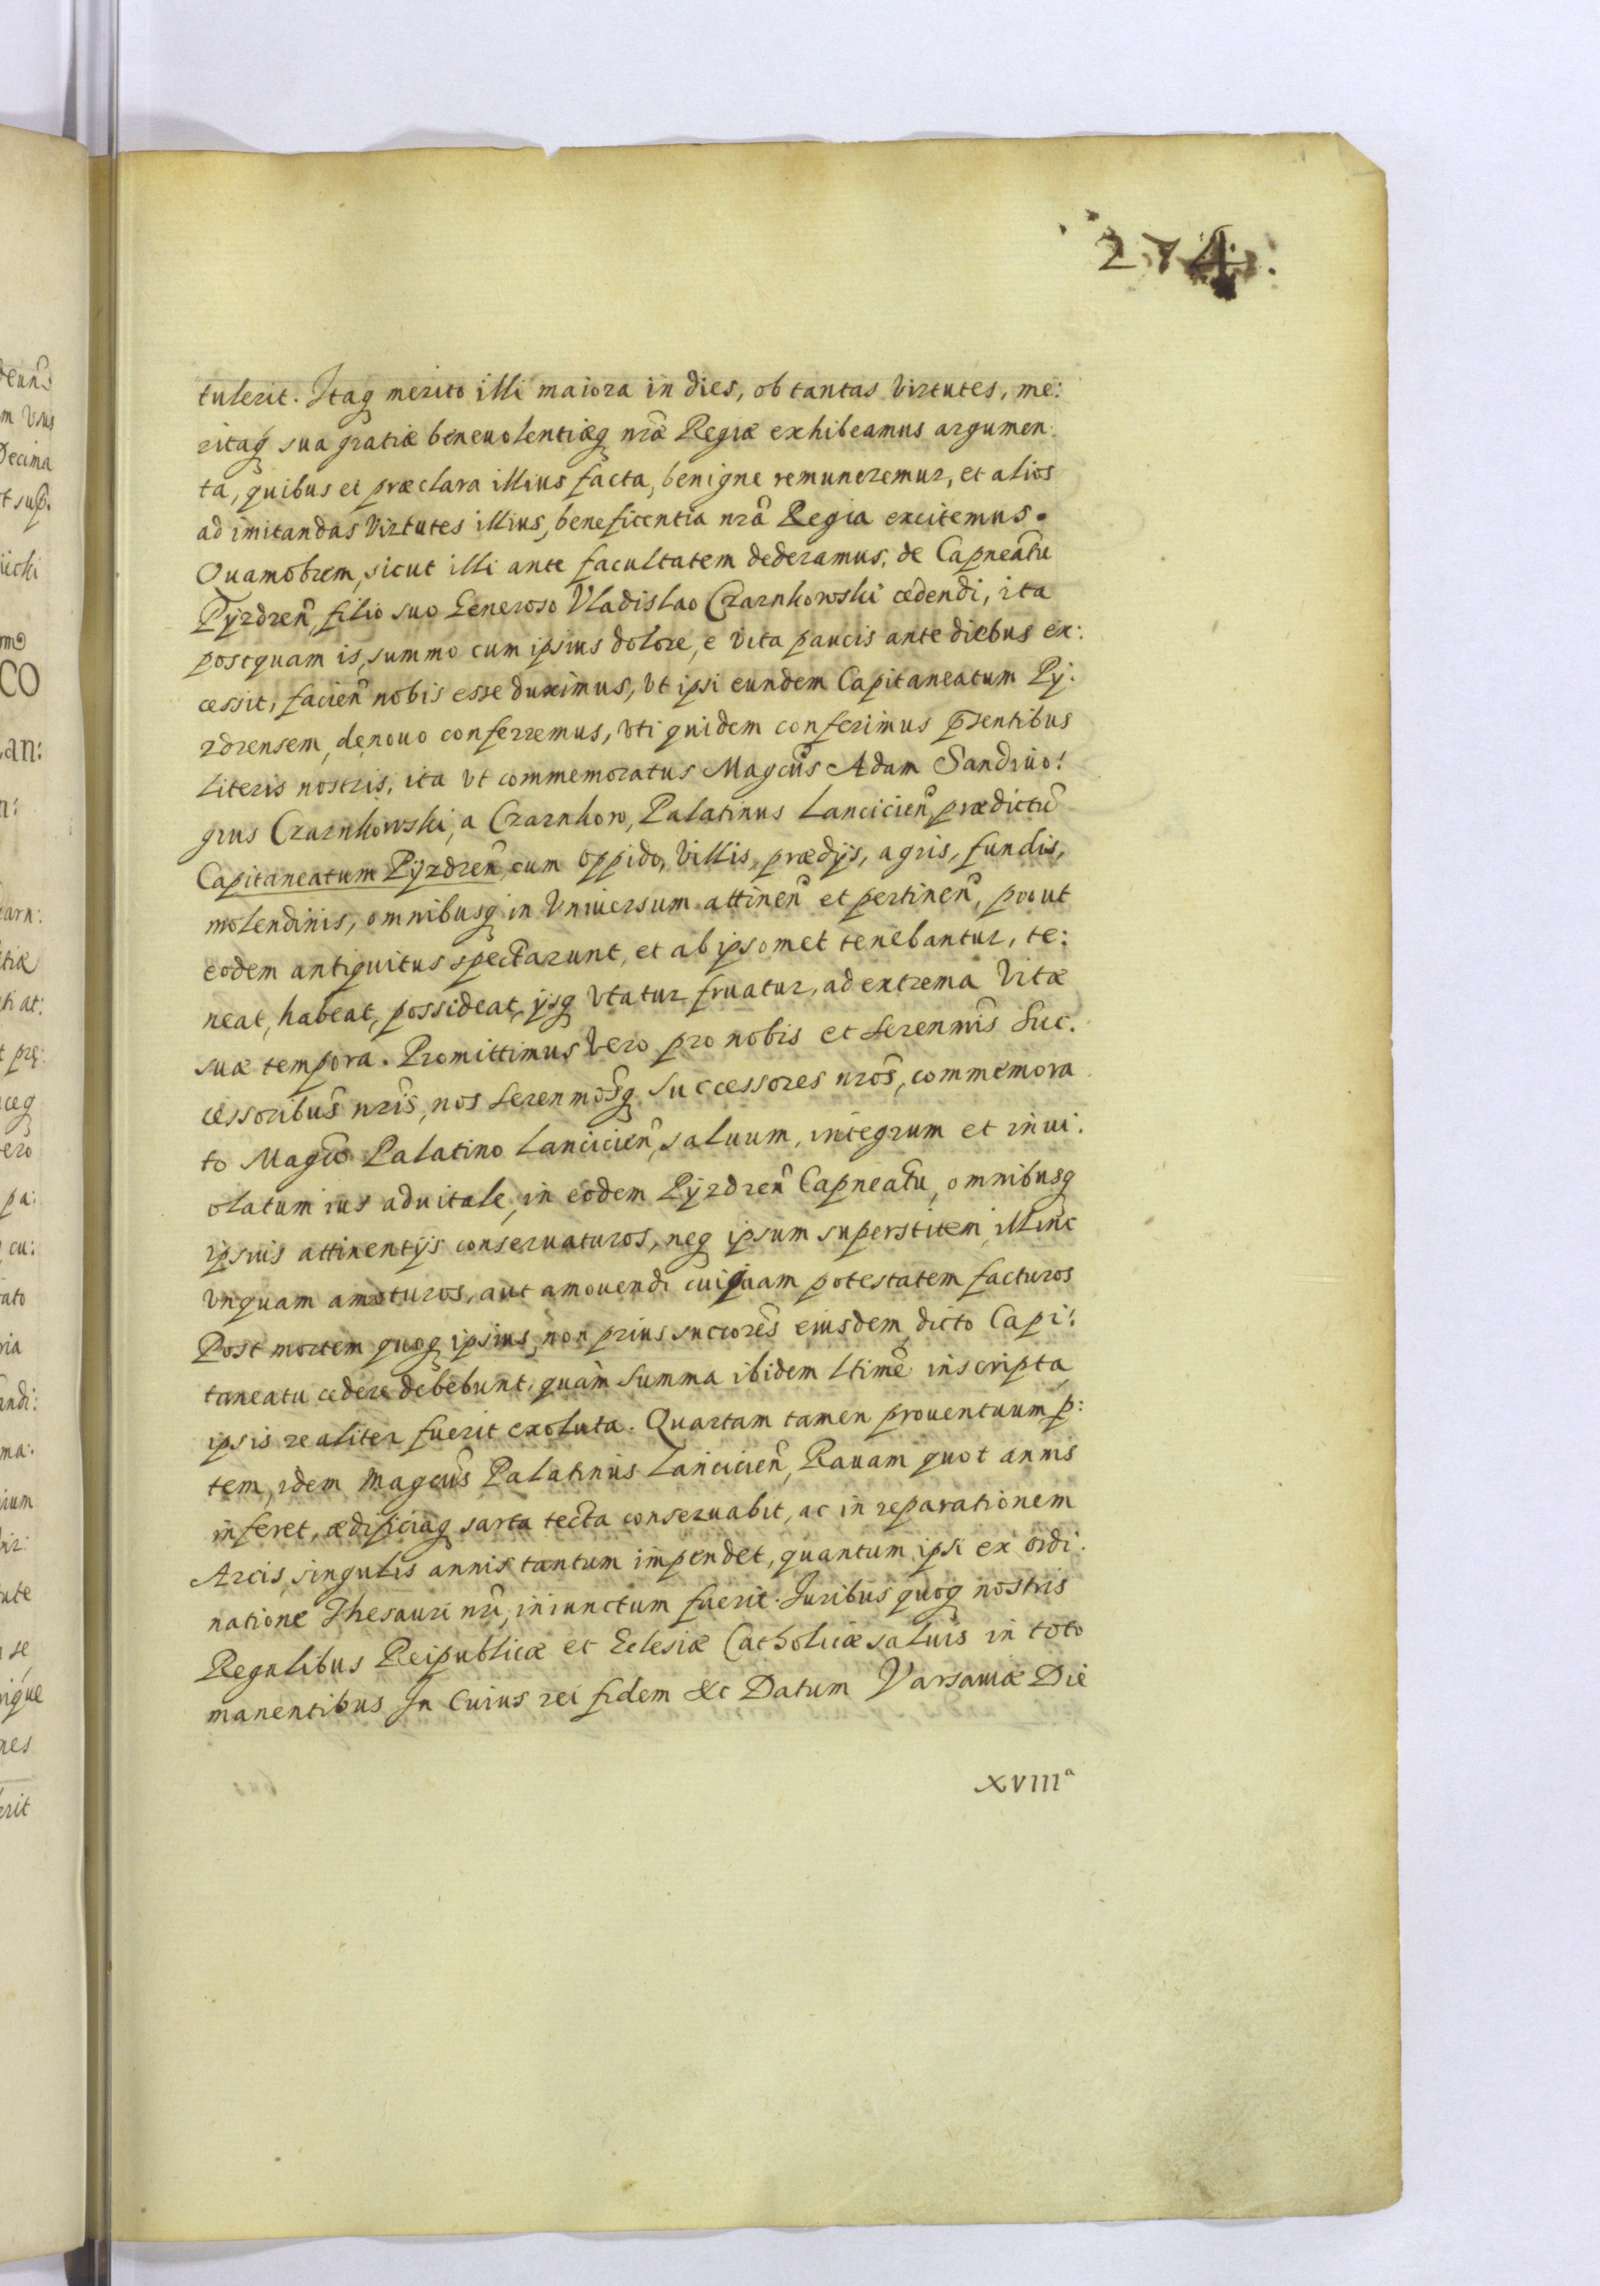 274.
tulerit. Itaq merito illi maiora in dies, ob tantas virtutes, me:
ritaq sua gratiæ beneuolentiæq nrã Regiæ exhibeamus argumen:
ta, quibus et præclara illius facta, benigne remuneremur, et alios
ad imitandas virtutes illius, beneficentia nrã Regia excitemus.
Quamobrem, sicut illi ante facultatem dederamus, de Capneatũ
Pÿzdreñ, filio suo Generoso Vladislao Czarnkowski cedendi, ita
postquam is, summo cum ipsius dolore, e vita paucis ante diebus ex:
cessit, facieñ nobis esse duximus, vt ipsi eundem Capitaneatum Pÿ:
zdrensem, denouo conferremus, vti quidem conferimus p̃sentibus
literis nostris, ita vt commemoratus Magcũs Adam Sandiuo:
gius Czarnkowski, a Czarnkow, Palatinus Lancicieñ, prædictũ
Capitaneatum Pÿzdreñ, cum oppido, villis, prædijs, agris, fundis,
molendinis, omnibusq in vniuersum attineñ et pertineñ, prout
eodem antiquitus spectarunt, et ab ipsomet tenebantur, te:
neat, habeat, possideat, ijsq vtatur fruatur, ad extrema vitæ
suæ tempora. Promittimus vero pro nobis et Serenm̃is Suc:
cessoribus nr̃is, nos Serenmõsq Successores nrõs, commemora
to Magcõ Palatino Lancicieñ, saluum, integrum et inui:
olatum ius aduitale, in eodem Pÿzdreñ Capneatũ, omnibusq
ipsius attinentijs conseruaturos, neq ipsum superstitem, illinc
vnquam amoturos, aut amouendi cuiquam potestatem facturos
Post mortem quoq ipsius, non prius succorẽs eiusdem, dicto Capi:
taneatu cedere debebunt, quàm summa ibidem ltimẽ inscripta,
ipsis realiter fuerit exoluta. Quartam tamen prouentuum p̱:
tem, idem Magcũs Palatinus Lancicieñ, Rauam quot annis
inferet, ædificiaq sarta tecta conseruabit, ac in reparationem
Arcis, singulis annis tantum impendet, quantum ipsi ex ordi:
natione Thesauri nrĩ, iniunctum fuerit. Iuribus quoq nostris
Regalibus Reipublicæ et Eclesiæ Catholicæ saluis in toto
manentibus In Cuius rei fidem &c Datum Varsauiæ Die
XVIIIª